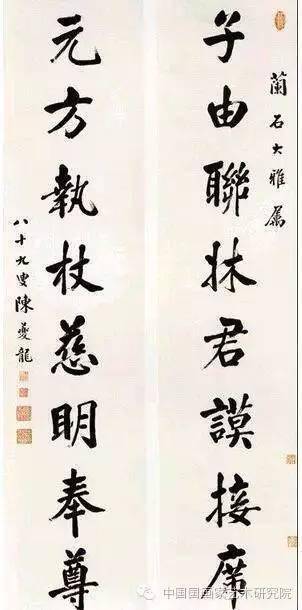 蘭石大雅属
子由聯牀君謨接席
元方執杖慈明奉尊
八十九叟陳夔龍
中国国画家艺术研究院